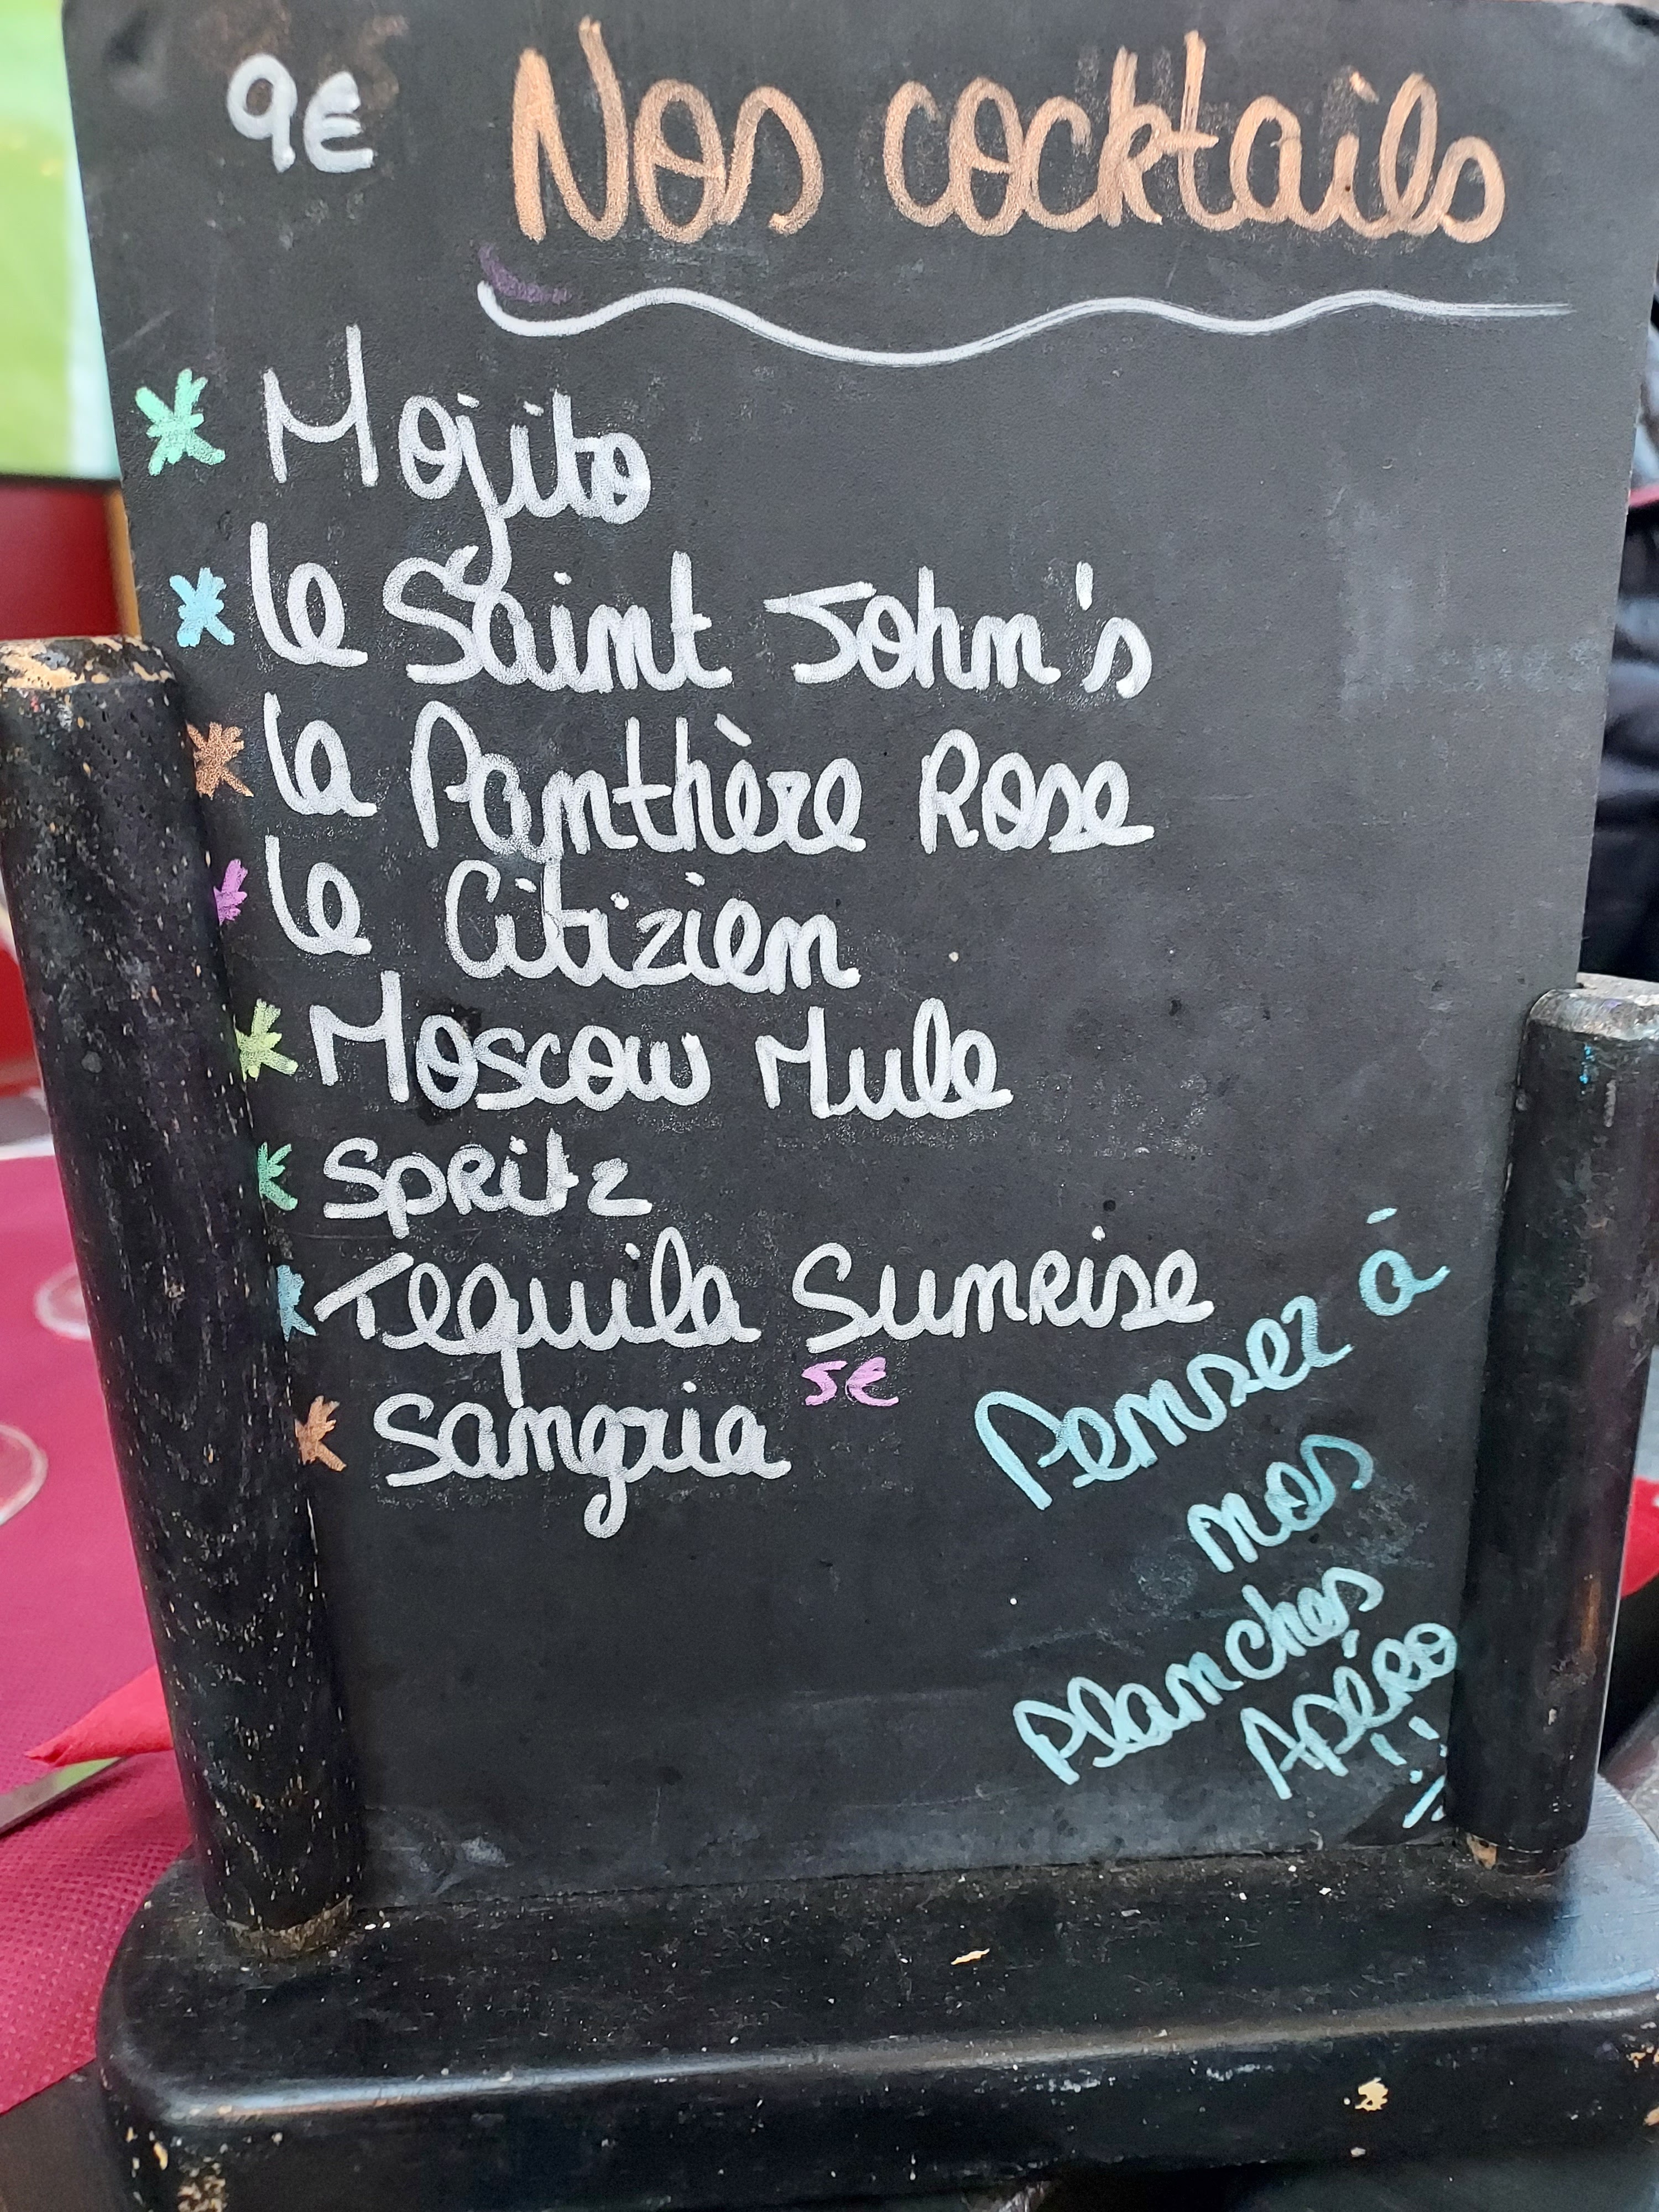 9€ Nos cocktails
Mojito
Le Saint John's
La Panthère Rose
Le Citizien
Moscow Mule
Spritz
Tequila Sunrise
5€
Sangria
Pensez à
nos
planches
Apéro
!!